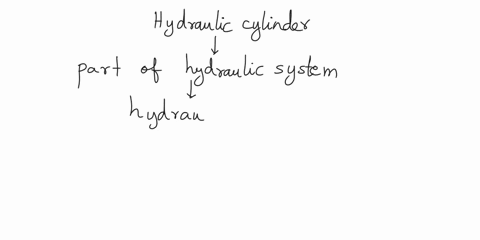 Hydraulic cylinder
part of hydraulic system
hydrau